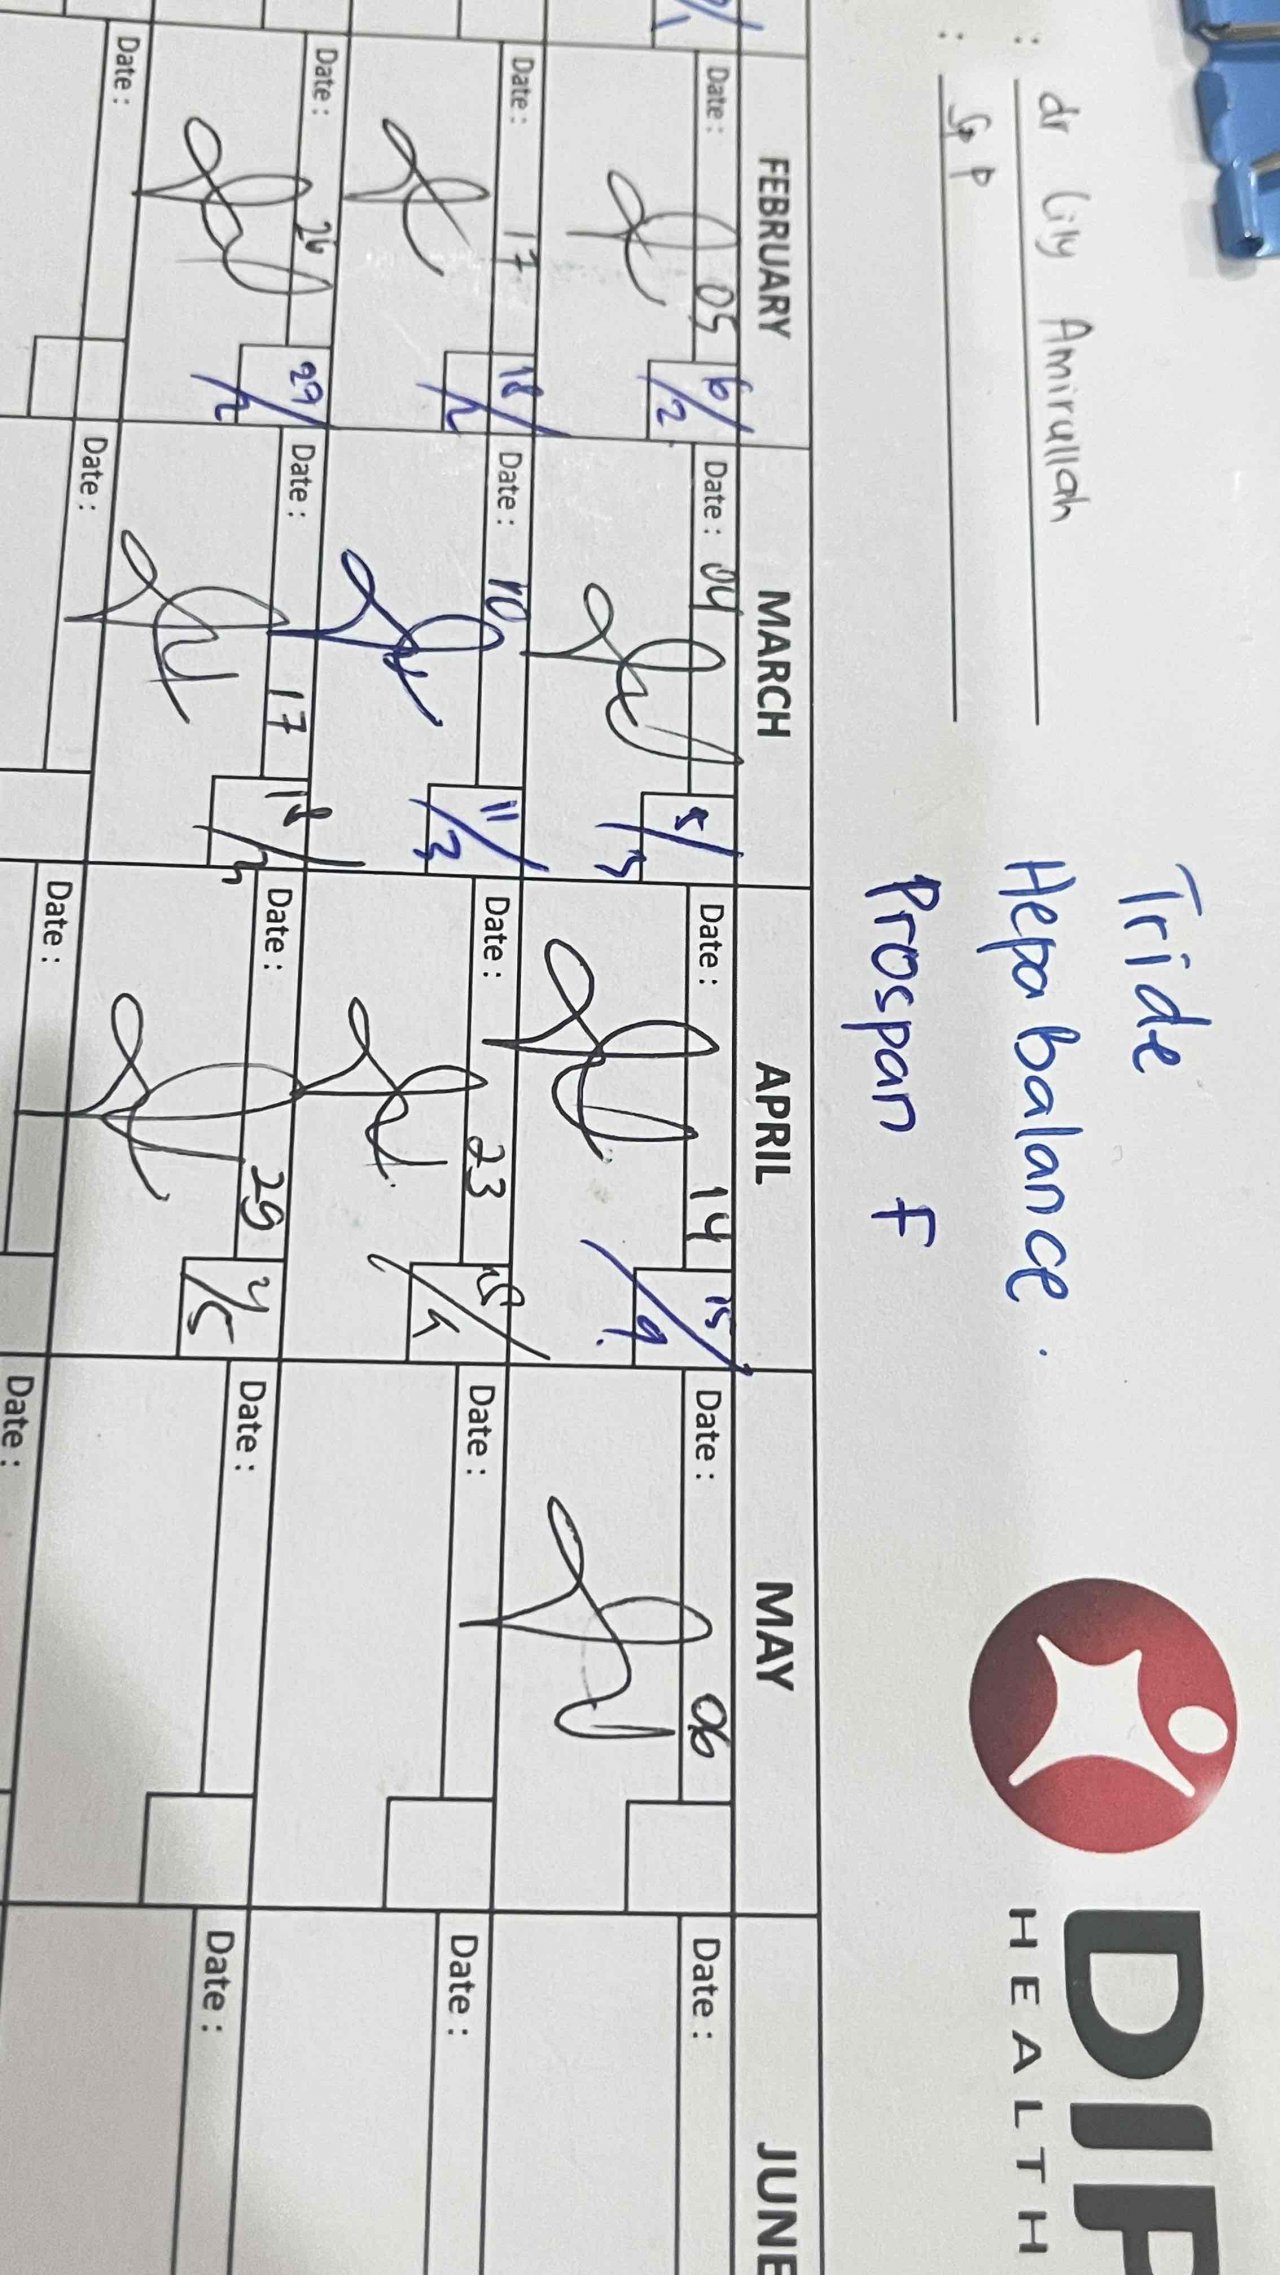 Tride
: dr Lily Amirullah Hepa balance.
: Sp P Prospan F
DIP
HEALTH
FEBRUARY MARCH APRIL MAY JUNE
Date: 05 Date: 04 Date: 14 Date: 06 Date:
6/2 5/3 15/4
Date: 17 Date: 10 Date: 23 Date: Date:
18/2 11/3 /4
Date: 26 Date: 17 Date: 29 Date: Date:
27/2 18/3 2/5
Date: Date: Date: Date: